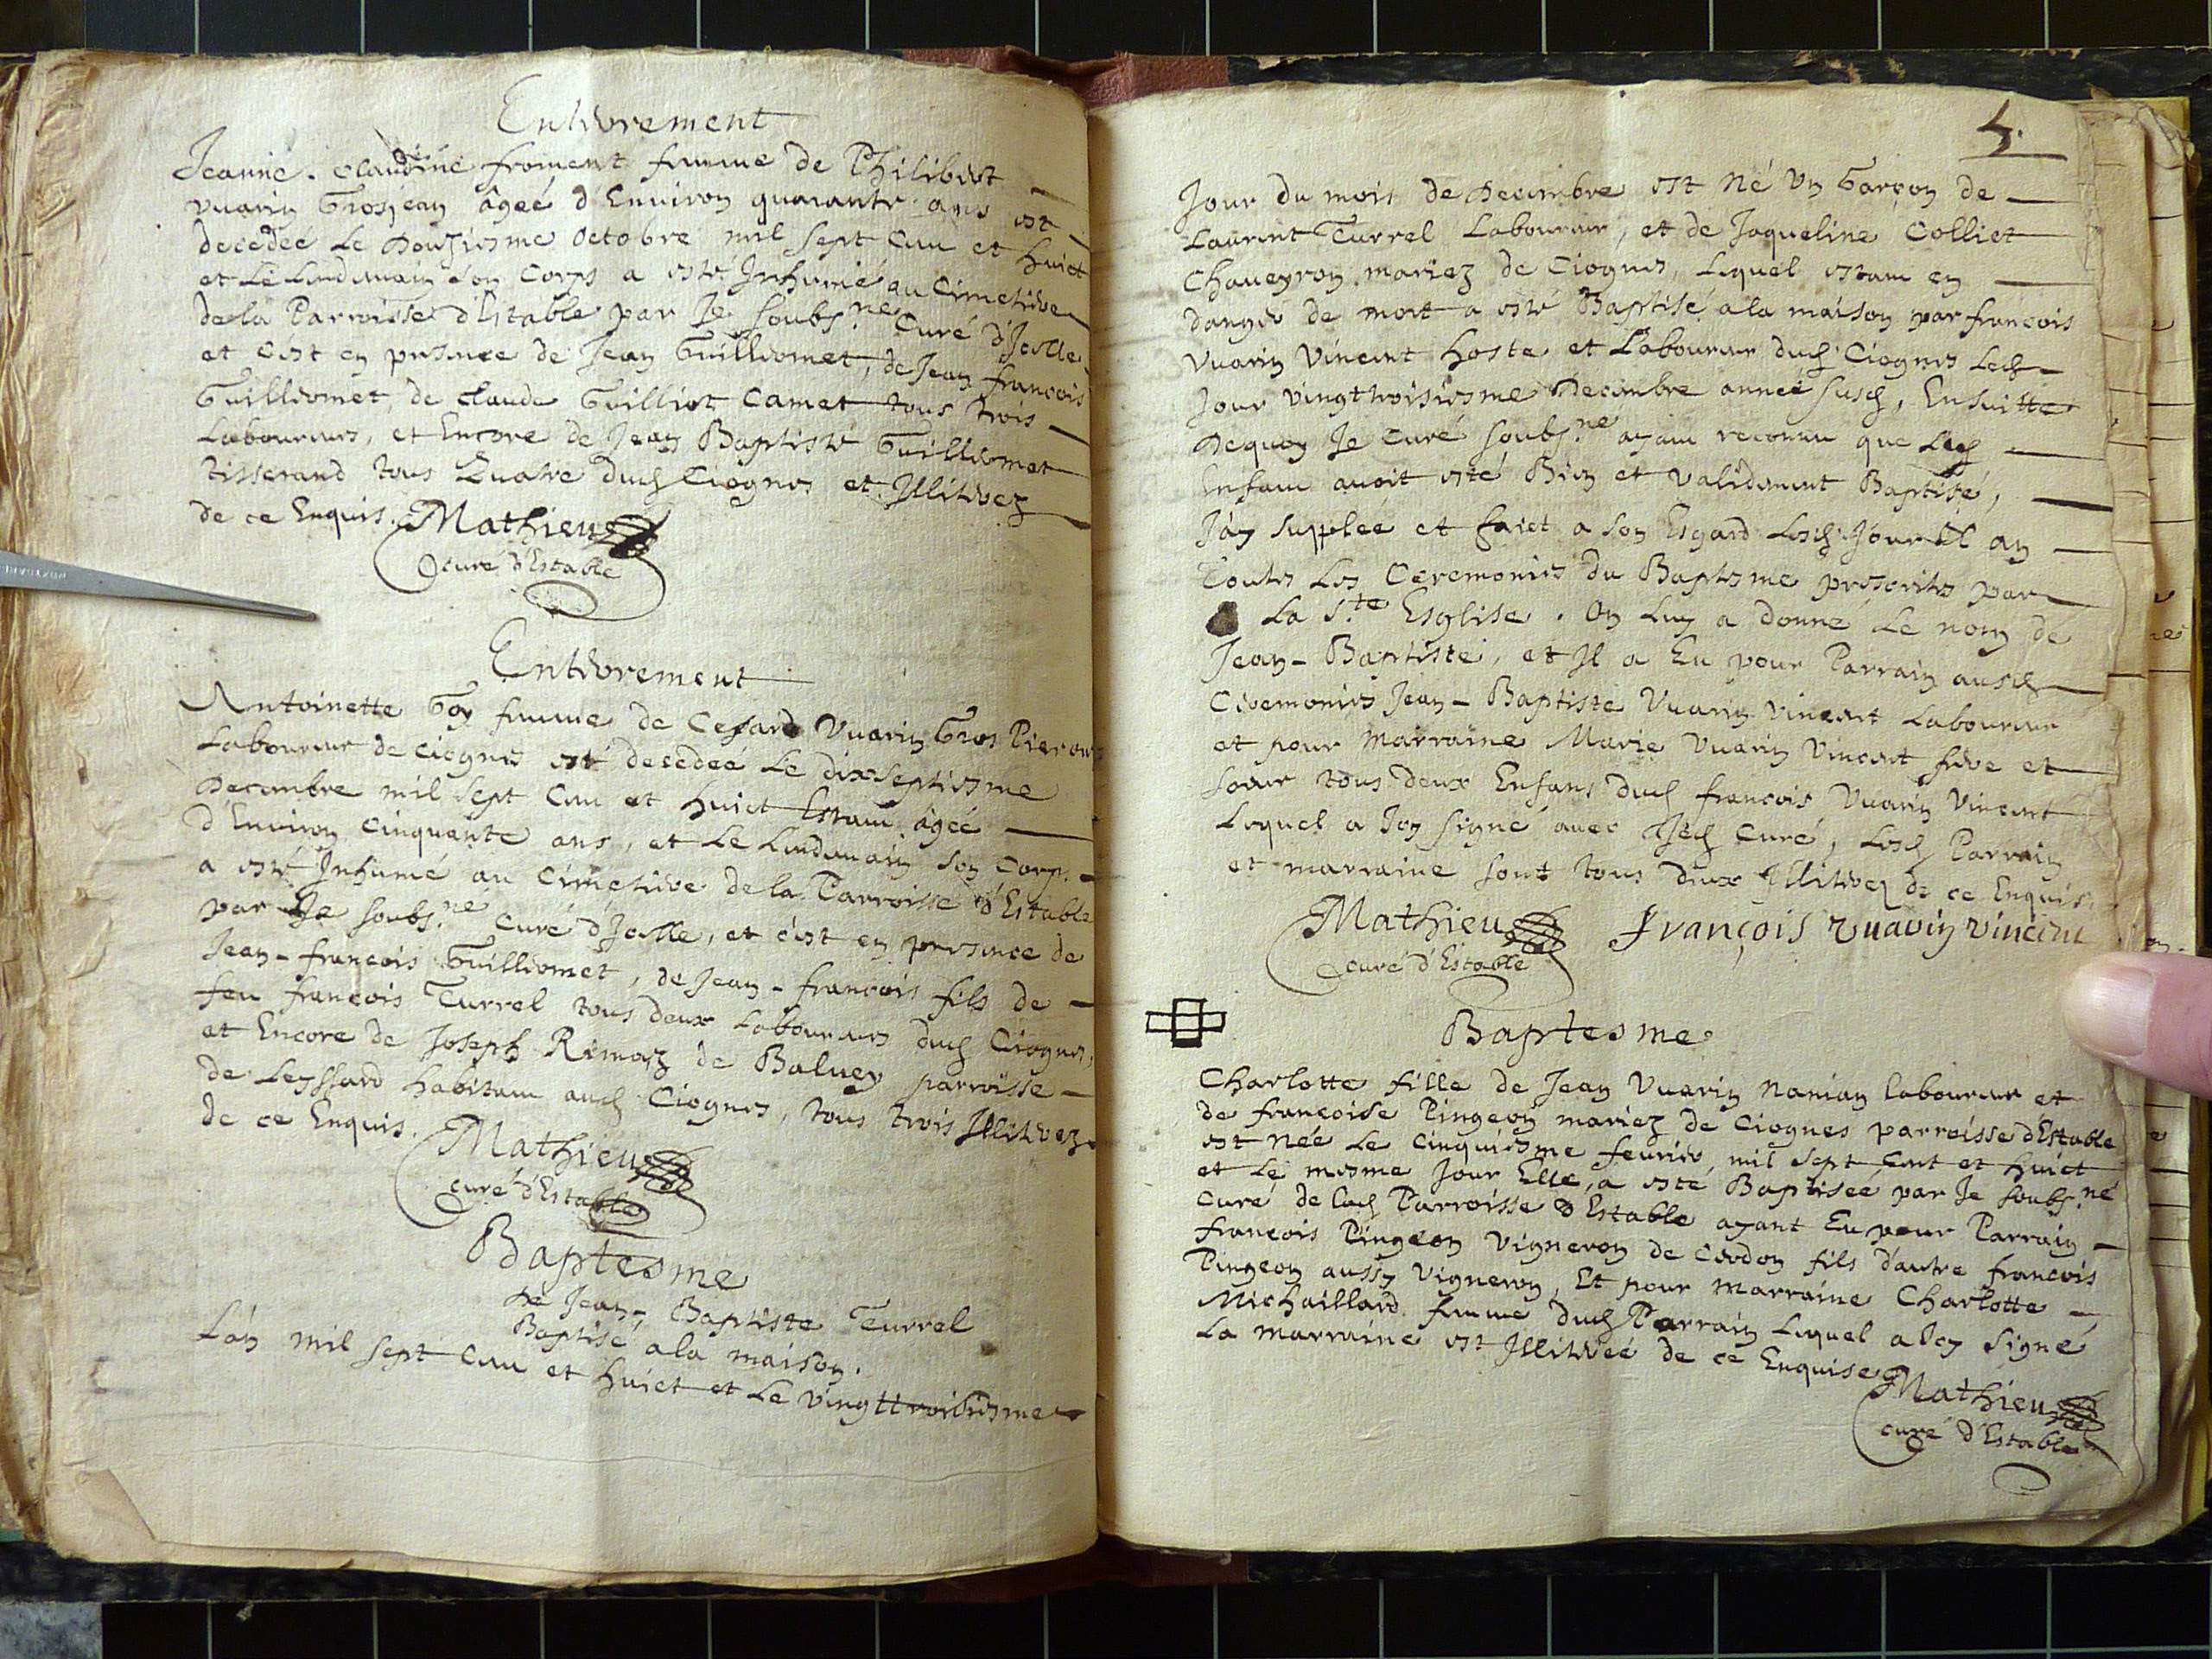 Enterrement
Jeanne. claudine froment femme de Philibert
vuarin Grosjean âgeé d'Environ quarante ans est
decedeé Le Douziesme octobre mil sept cent et huict
et Le Lendemain son Corps a esté Inhumé au Cimetiere
de la Parroisse d'Estable par Je soubs.né Curé d'Icelle
et c'est en presence de Jean Guilliermet, de Jean françois
Guilliermet, de claude Guilliot Camet tous trois
Laboureurs, et Encore de Jean Baptiste Guilliermet
tisserand tous Quatre dud Ciognes et Illiterez
de ce Enquis. Mathieu
curé d'Estable
Enterrement
Antoinette Goy femme de Cesard Vuarin Gros Pierre
Laboureur de Ciognes est decedeé Le dixseptiesme
Decembre mil sept cent et huict Estant âgeé
d'Environ Cinquante ans, et Le Lendemain son Corps
a esté Inhumé au Cimetiere de la Parroisse d'Estable
par Je soubs.né Curé d'Icelle, et c'est en presence de
Jean-françois Guilliermet, de Jean-françois fils de
feu françois Turrel tous deux Laboureurs dud Ciognes,
et Encore de Joseph Remoz de Baluey parroisse
de Leyssard habitant aud Ciognes, tous trois Illiterez
de ce Enquis. Mathieu
curé d'Estable
Baptesme
de Jean-Baptiste Turrel
Baptisé a la maison.
L'an mil sept cent et huict et Le vingttroisiesme
5.
Jour du mois de Decembre est Né Un Garçon de
Laurent Turrel Laboureur, et de Jaqueline Colliet
Chaueyron mariez de Ciognes, Lequel estant en
danger de mort a esté Baptisé a la maison par françois
Vuarin Vincent hoste et Laboureur dud Ciognes Led
Jour vingttroisiesme Decembre anneé susd, Ensuitte
Dequoy Je Curé soubs.né ayant reconnu que Led
Enfant auoit esté Bien et validement Baptisé,
J'ay suppleé et faict a son Esgard Lesd Jour et an
Toutes Les Ceremonies du Baptesme prescrites par
La S.te Esglise. On Luy a donné Le nom de
Jean-Baptiste, et Il a Eu pour Parrain ausd
Ceremonies Jean-Baptiste Vuarin Vincent Laboureur
et pour Marraine Marie Vuarin Vincent frere et
soeur tous deux Enfans dud françois Vuarin Vincent
Lequel a Icy signé auec Led Curé, Lesd Parrain
et marraine sont tous deux Illiterez de ce Enquis.
Mathieu François vuarin vincent
curé d'Estable
Baptesme
Charlotte fille de Jean Vuarin Nanian laboureur et
de françoise Pingeon mariez de Ciognes parroisse d'Estable
est née Le Cinquiesme feurier, mil sept cent et huict
et Le mesme Jour Elle, a esté Baptiseé par Je soubs.né
Curé de lad Parroisse d'Estable ayant Eu pour Parrain
françois Pingeon vigneron de Cerdon fils d'autre françois
Pingeon aussy vigneron, Et pour Marraine Charlotte
Michaillard femme dud Parrain Lequel a Icy signé
La marraine est Illitereé de ce Enquise Mathieu
curé d'Estable